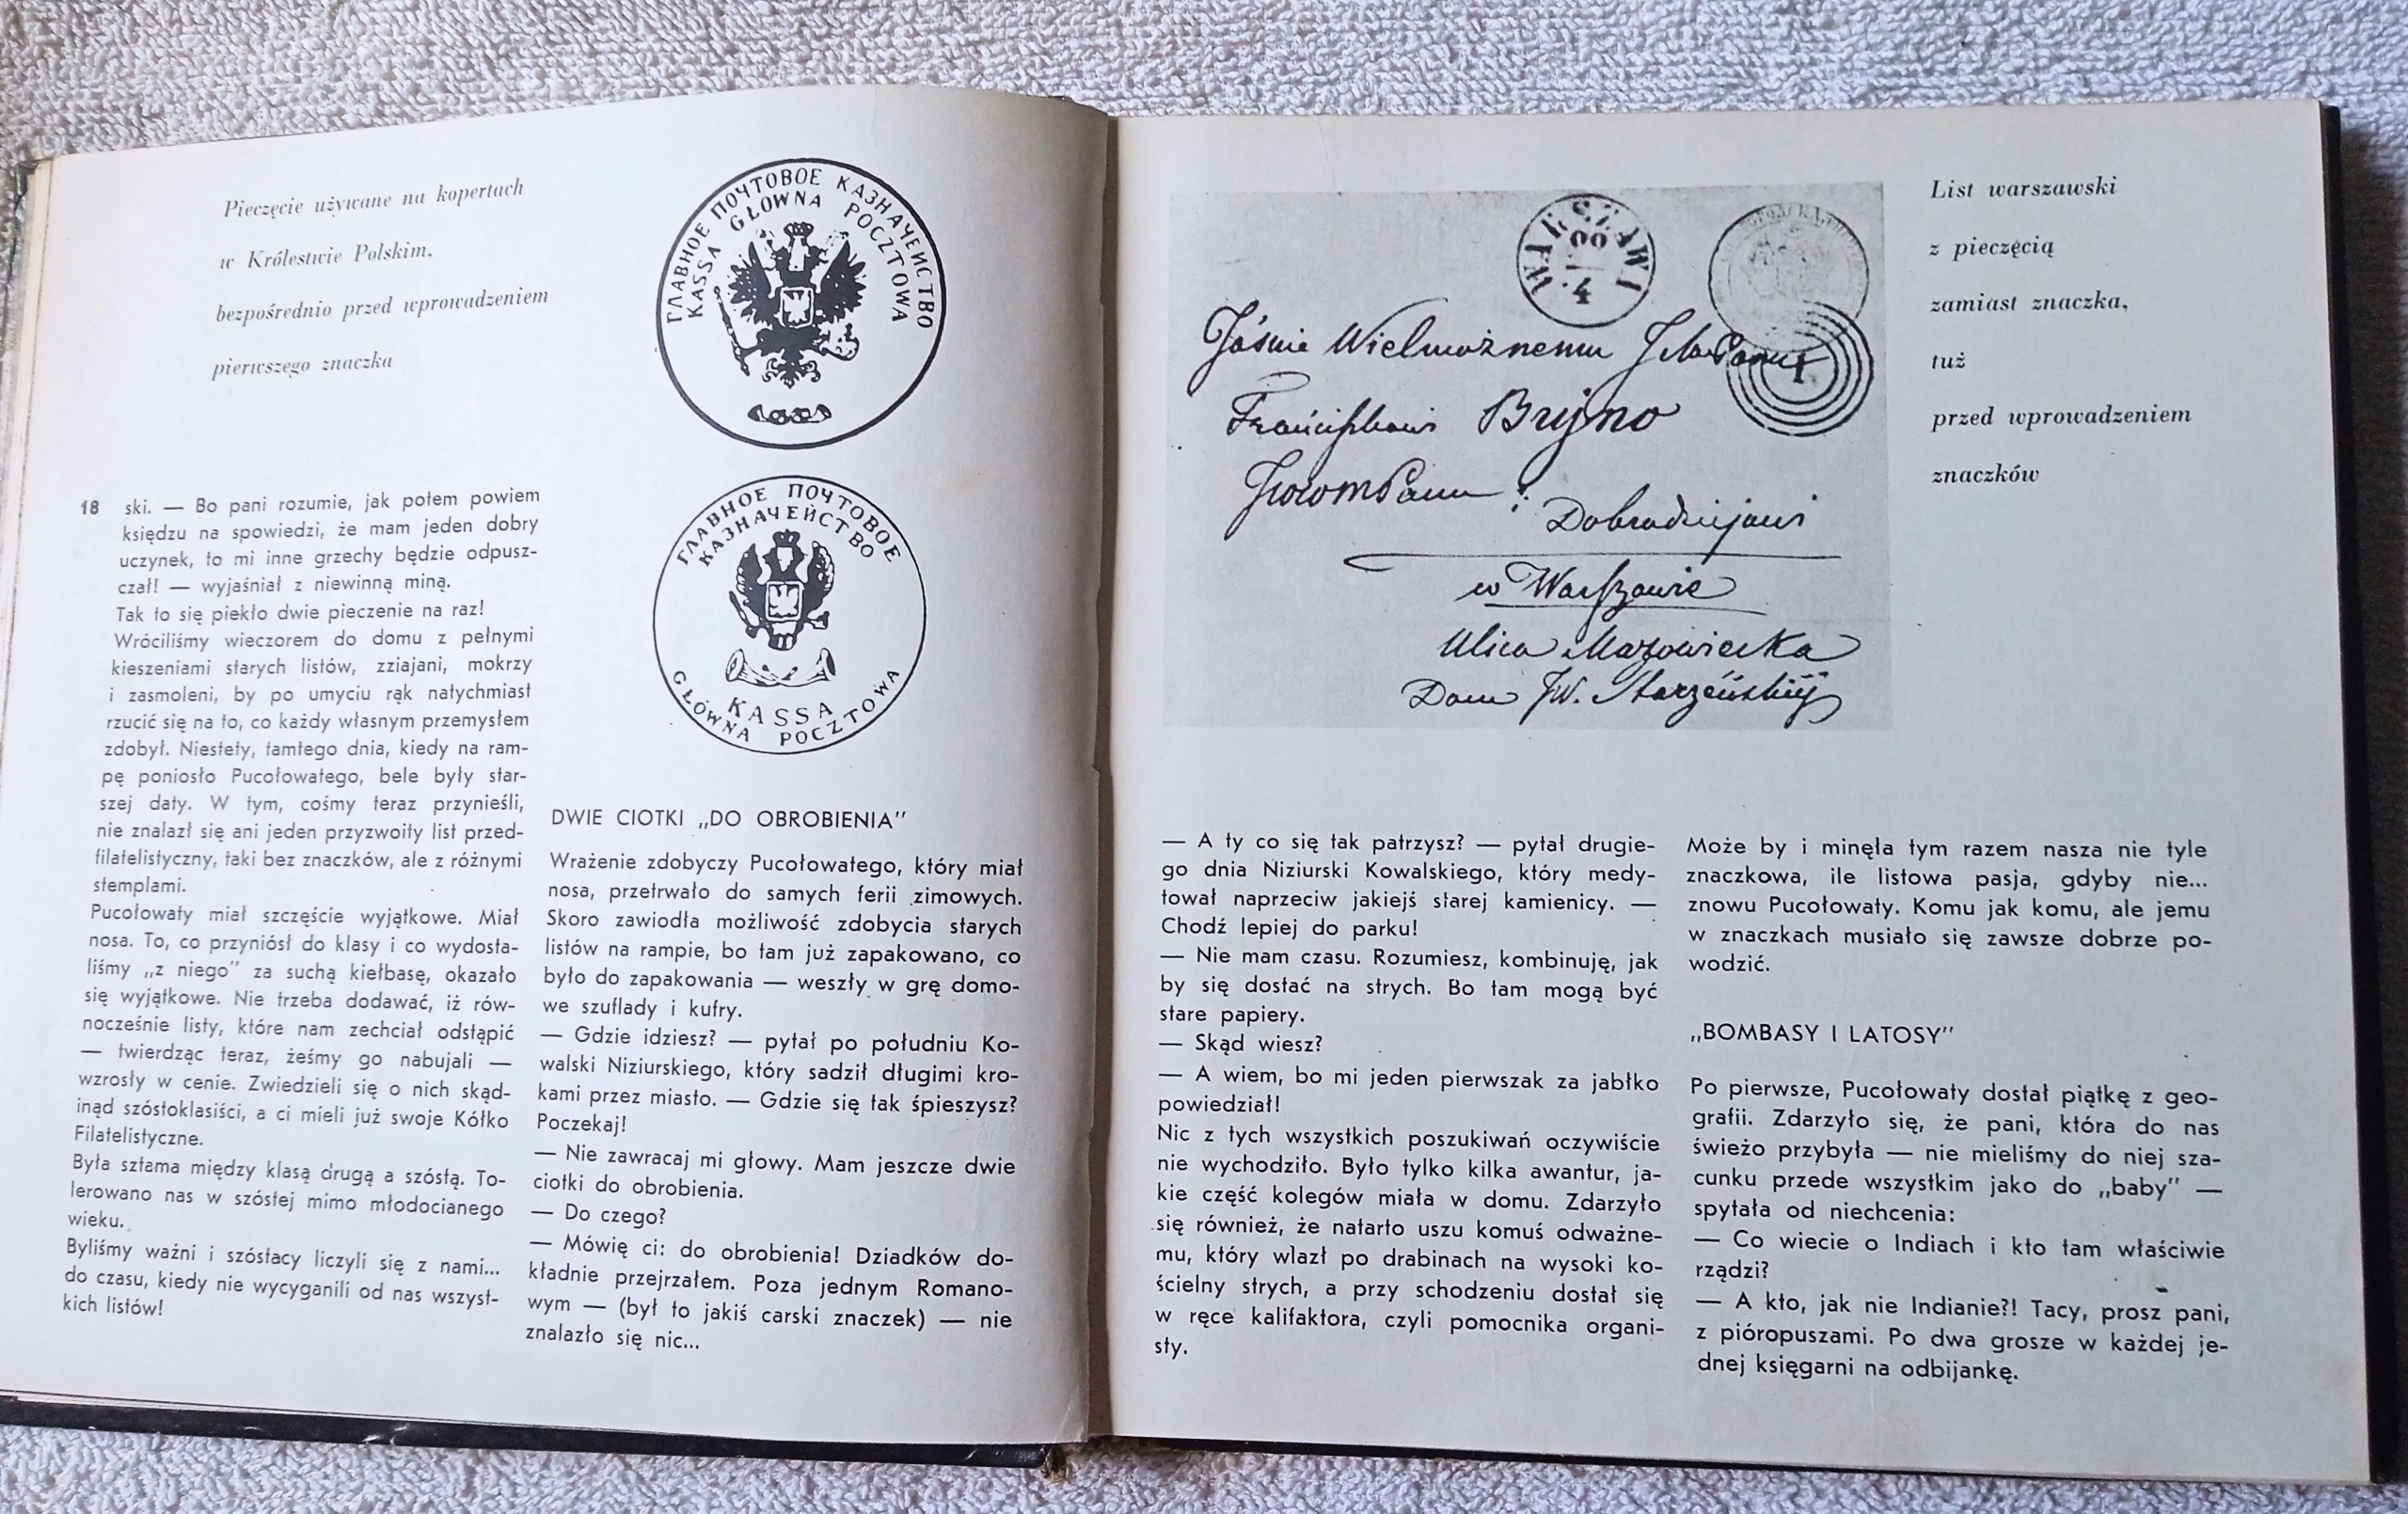 Pieczęcie używane na kopertach
w Królestwie Polskim,
bezpośrednio przed wprowadzeniem
pierwszego znaczka
ГЛАВНОЕ ПОЧТОВОЕ КАЗНАЧЕИСТВО
KASSA GŁOWNA POCZTOWA
ГЛАВНОЕ ПОЧТОВОЕ
КАЗНАЧЕЙСТВО
KASSA
GŁÓWNA POCZTOWA
18
ski. — Bo pani rozumie, jak potem powiem
księdzu na spowiedzi, że mam jeden dobry
uczynek, to mi inne grzechy będzie odpusz-
czał! — wyjaśniał z niewinną miną.
Tak to się piekło dwie pieczenie na raz!
Wróciliśmy wieczorem do domu z pełnymi
kieszeniami starych listów, zziajani, mokrzy
i zasmoleni, by po umyciu rąk natychmiast
rzucić się na to, co każdy własnym przemysłem
zdobył. Niestety, tamtego dnia, kiedy na ram-
pę poniosło Pucołowatego, bele były star-
szej daty. W tym, cośmy teraz przynieśli,
nie znalazł się ani jeden przyzwoity list przed-
filatelistyczny, taki bez znaczków, ale z różnymi
stemplami.
Pucołowaty miał szczęście wyjątkowe. Miał
nosa. To, co przyniósł do klasy i co wydosta-
liśmy „z niego” za suchą kiełbasę, okazało
się wyjątkowe. Nie trzeba dodawać, iż rów-
nocześnie listy, które nam zechciał odstąpić
— twierdząc teraz, żeśmy go nabujali —
wzrosły w cenie. Zwiedzieli się o nich skąd-
inąd szóstoklasiści, a ci mieli już swoje Kółko
Filatelistyczne.
Była sztama między klasą drugą a szóstą. To-
lerowano nas w szóstej mimo młodocianego
wieku.
Byliśmy ważni i szóstacy liczyli się z nami...
do czasu, kiedy nie wycyganili od nas wszyst-
kich listów!
DWIE CIOTKI „DO OBROBIENIA”
Wrażenie zdobyczy Pucołowatego, który miał
nosa, przetrwało do samych ferii zimowych.
Skoro zawiodła możliwość zdobycia starych
listów na rampie, bo tam już zapakowano, co
było do zapakowania — weszły w grę domo-
we szuflady i kufry.
— Gdzie idziesz? — pytał po południu Ko-
walski Niziurskiego, który sadził długimi kro-
kami przez miasto. — Gdzie się tak śpieszysz?
Poczekaj!
— Nie zawracaj mi głowy. Mam jeszcze dwie
ciotki do obrobienia.
— Do czego?
— Mówię ci: do obrobienia! Dziadków do-
kładnie przejrzałem. Poza jednym Romano-
wym — (był to jakiś carski znaczek) — nie
znalazło się nic...
WARSZAWI
4
1
Jaśnie Wielmożnemu
Bryjno
i
Dobrodziejowi
w Warszawie
Ulica Mazowiecka
Dom JW.
List warszawski
z pieczęcią
zamiast znaczka,
tuż
przed wprowadzeniem
znaczków
— A ty co się tak patrzysz? — pytał drugie-
go dnia Niziurski Kowalskiego, który medy-
tował naprzeciw jakiejś starej kamienicy. —
Chodź lepiej do parku!
— Nie mam czasu. Rozumiesz, kombinuję, jak
by się dostać na strych. Bo tam mogą być
stare papiery.
— Skąd wiesz?
— A wiem, bo mi jeden pierwszak za jabłko
powiedział!
Nic z tych wszystkich poszukiwań oczywiście
nie wychodziło. Było tylko kilka awantur, ja-
kie część kolegów miała w domu. Zdarzyło
się również, że natarto uszu komuś odważne-
mu, który wlazł po drabinach na wysoki ko-
ścielny strych, a przy schodzeniu dostał się
w ręce kalifaktora, czyli pomocnika organi-
sty.
Może by i minęła tym razem nasza nie tyle
znaczkowa, ile listowa pasja, gdyby nie...
znowu Pucołowaty. Komu jak komu, ale jemu
w znaczkach musiało się zawsze dobrze po-
wodzić.
„BOMBASY I LATOSY”
Po pierwsze, Pucołowaty dostał piątkę z geo-
grafii. Zdarzyło się, że pani, która do nas
świeżo przybyła — nie mieliśmy do niej sza-
cunku przede wszystkim jako do „baby” —
spytała od niechcenia:
— Co wiecie o Indiach i kto tam właściwie
rządzi?
— A kto, jak nie Indianie?! Tacy, prosz pani,
z pióropuszami. Po dwa grosze w każdej je-
dnej księgarni na odbijankę.